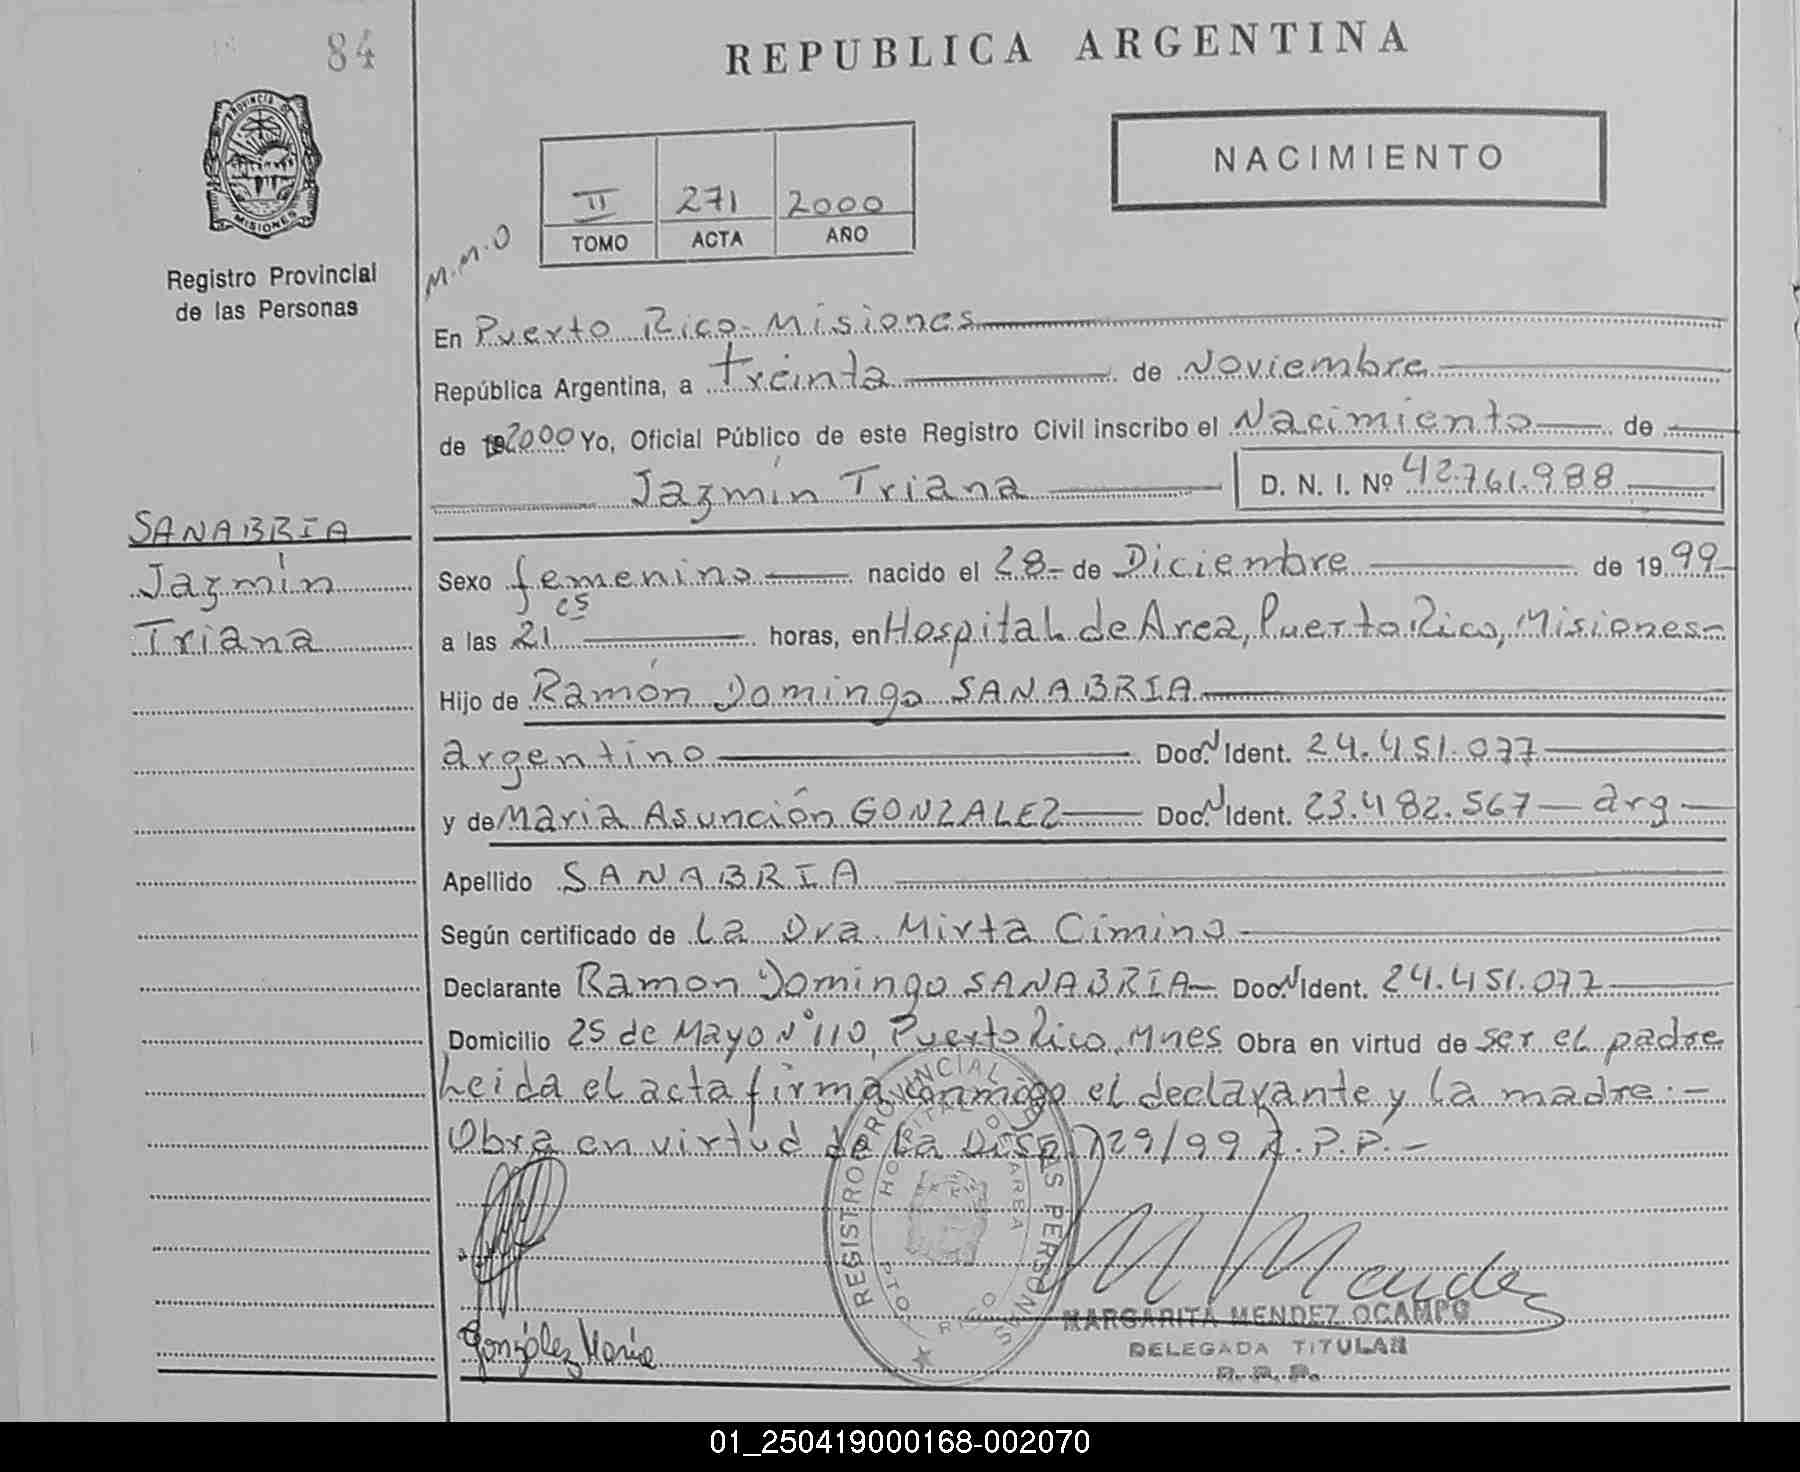 84
REPUBLICA ARGENTINA
NACIMIENTO
PROVINCIA DE
MISIONES
II 271 2000
TOMO ACTA AÑO
M.M.O
Registro Provincial
de las Personas
En Puerto Rico-Misiones
República Argentina, a treinta de Noviembre
de 2000 Yo, Oficial Público de este Registro Civil inscribo el Nacimiento de
Jazmín Triana D. N. I. Nº 42.761.988
SANABRIA
Jazmín
Triana
Sexo femenino nacido el 28- de Diciembre de 1999-
a las 21 cs horas, en Hospital de Area, Puerto Rico, Misiones-
Hijo de Ramón Domingo SANABRIA
argentino Doc. N Ident. 24.451.077
y de Maria Asunción GONZALEZ Doc. N Ident. 23.482.567- arg-
Apellido SANABRIA
Según certificado de La Dra. Mirta Cimino-
Declarante Ramon Domingo SANABRIA- Doc. N Ident. 24.451.077
Domicilio 25 de Mayo Nº 110, Puerto Rico, Mnes Obra en virtud de ser el padre
Leida el acta firma conmigo el declarante y la madre.-
Obra en virtud de La Disp. 729/99 R.P.P.-
REGISTRO PROVINCIAL DE LAS PERSONAS
HOSPITAL DE AREA
PTO. RICO
M Mendez
MARGARITA MENDEZ OCAMPO
DELEGADA TITULAR
R. P. P.
González María
01_250419000168-002070